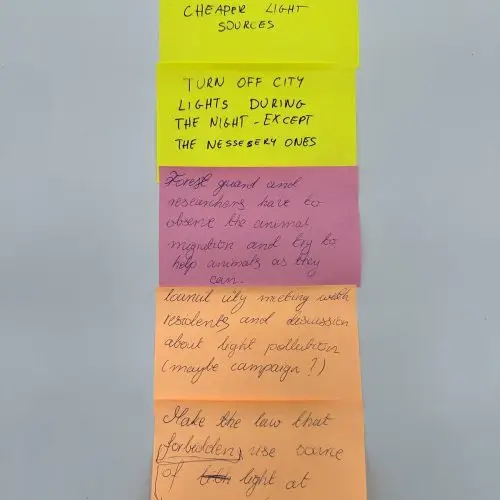 CHEAPER LIGHT
SOURCES
TURN OFF CITY
LIGHTS DURING
THE NIGHT - EXCEPT
THE NESSEBERY ONES
Forest guard and
researchers have to
observe the animal
migration and try to
help animals as they
can.
city meeting with
residents and discussion
about light pollution
(maybe campaign?)
Make the law that
forbidden use some
of light at